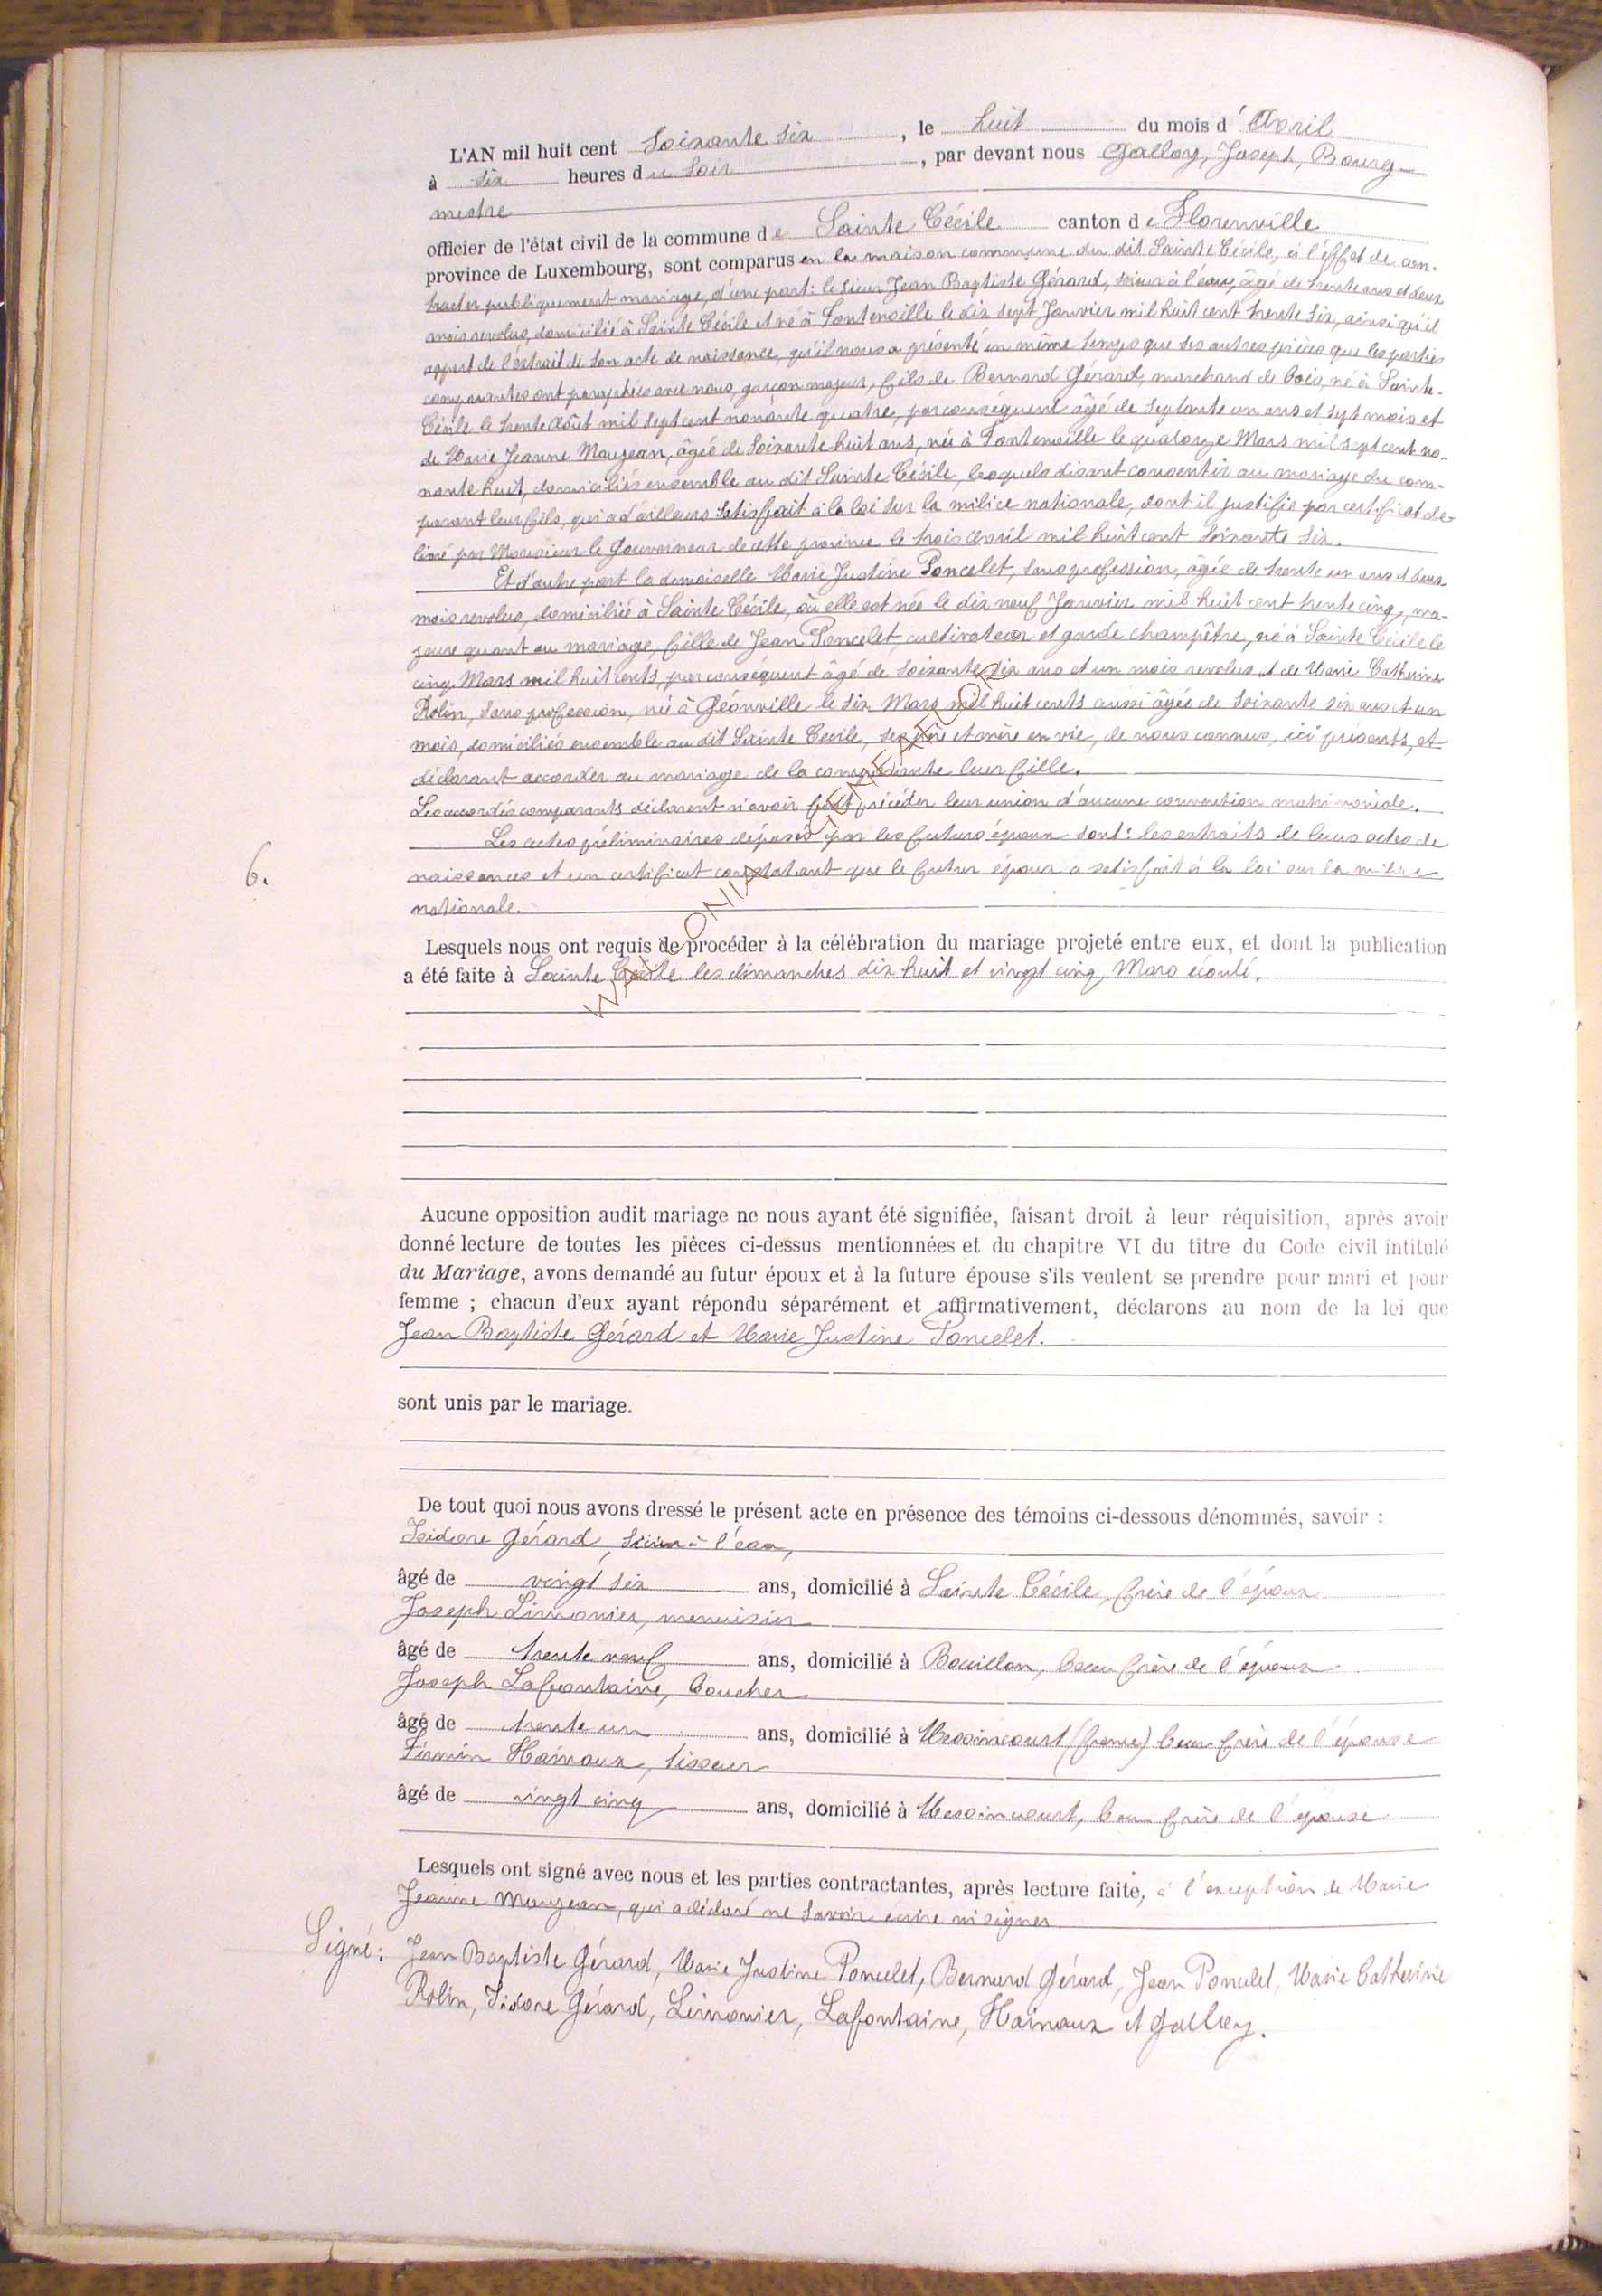 L'AN mil huit cent Soixante Six, le huit du mois d'Avril
à six heures du Soir, par devant nous Galloy, Joseph, Bourg-
mestre
officier de l'état civil de la commune de Sainte Cécile canton de Florenville
province de Luxembourg, sont comparus en la maison commune du dit Sainte Cécile, à l'éffet de con-
tracter publiquement mariage, d'une part: le sieur Jean Baptiste Gérard, scieur à l'eau, âgé de trente ans et deux
mois revolus, domicilié à Sainte Cécile et né à Fontenoille le dix sept Janvier mil huit cent trente six, ainsi qu'il
appert de l'extrait de son acte de naissance, qu'il nous a présenté en même temps que les autres pièces que les parties
comparantes ont paraphées avec nous, garçon majeur, fils de Bernard Gérard, marchand de bois, né à Sainte-
Cécile le trente Août mil sept cent nonante quatre, par conséquent âgé de septante un ans et sept mois et
de Marie Jeanne Maujean, âgée de soixante huit ans, née à Fontenoille le quatorze Mars mil sept cent no-
nante huit, domiciliés ensemble au dit Sainte Cécile, lesquels disant consentir au mariage du com-
parant leur fils, qui a d'ailleurs satisfait à la loi sur la milice nationale, dont il justifie par certificat dé-
livré par Monsieur le Gouverneur de cette province le trois Avril mil huit cent soixante six.
Et d'autre part la demoiselle Marie Justine Poncelet, sans profession, âgée de trente un ans et deux
mois revolus, domiciliée à Sainte Cécile, où elle est née le dix neuf Janvier mil huit cent trente cinq, ma-
jeure quant au mariage, fille de Jean Poncelet, cultivateur et garde champêtre, né à Sainte Cécile le
cinq Mars mil huit cents, par conséquent âgé de soixante six ans et un mois revolus et de Marie Catherine
Rolin, sans profession, née à Géonville le six Mars mil huit cents aussi âgée de soixante six ans et un
mois, domiciliés ensemble au dit Sainte Cécile, ses père et mère en vie, de nous connus, ici présents, et
déclarant accorder au mariage de la comparante leur fille.
Les accordés comparants déclarent n'avoir fait précéder leur union d'aucune convention matrimoniale.
Les actes préliminaires déposés par les futurs époux sont: les extraits de leurs actes de
6. naissances et un certificat constatant que le futur époux a satisfait à la loi sur la milice
nationale.
Lesquels nous ont requis de procéder à la célébration du mariage projeté entre eux, et dont la publication
a été faite à Sainte Cécile les dimanches dix huit et vingt cinq Mars écoulé.
WALLONIA GENEAFLOR
Aucune opposition audit mariage ne nous ayant été signifiée, faisant droit à leur réquisition, après avoir
donné lecture de toutes les pièces ci-dessus mentionnées et du chapitre VI du titre du Code civil intitulé
du Mariage, avons demandé au futur époux et à la future épouse s'ils veulent se prendre pour mari et pour
femme ; chacun d'eux ayant répondu séparément et affirmativement, déclarons au nom de la loi que
Jean Baptiste Gérard et Marie Justine Poncelet.
sont unis par le mariage.
De tout quoi nous avons dressé le présent acte en présence des témoins ci-dessous dénommés, savoir :
Isidore Gérard, scieur à l'eau,
âgé de vingt six ans, domicilié à Sainte Cécile, frère de l'époux
Joseph Limonier, menuisier
âgé de trente neuf ans, domicilié à Bouillon, beau frère de l'époux
Joseph Lafontaine, boucher
âgé de trente un ans, domicilié à Messincourt (france) beau frère de l'épouse
Firmin Hainaux, tisseur
âgé de vingt cinq ans, domicilié à Messincourt, beau frère de l'épouse
Lesquels ont signé avec nous et les parties contractantes, après lecture faite, à l'exception de Marie
Jeanne Maujean, qui a déclaré ne savoir ecrire ni signer
Signé: Jean Baptiste Gérard, Marie Justine Poncelet, Bernard Gérard, Jean Poncelet, Marie Catherine
Rolin, Isidore Gérard, Limonier, Lafontaine, Hainaux et Galloy.